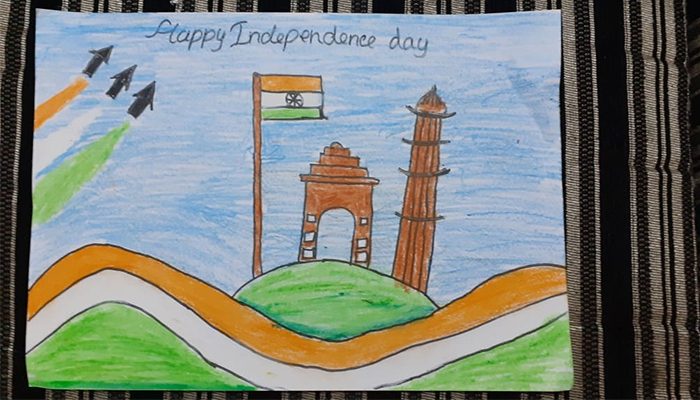 Happy Independence day